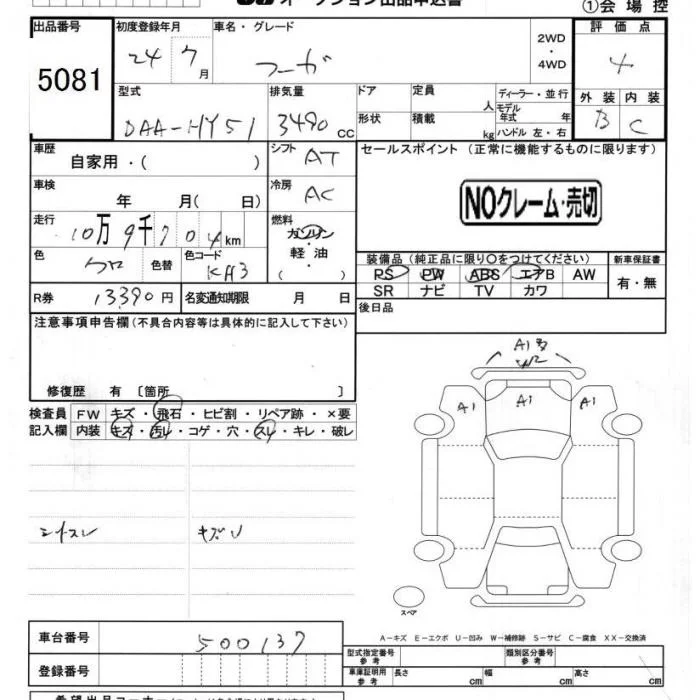 オークション出品申込書
①会場控
出品番号 初度登録年月 車名・グレード 評価点
5081 24年7月 フーガ 2WD・4WD 4
型式 排気量 ドア 定員 人 ディーラー・並行 外装 内装
DAA-HY51 3490cc 形状 積載 kg モデル年式 年 ハンドル 左・右 B C
車歴 自家用・( ) シフト AT セールスポイント (正常に機能するものに限ります)
車検 年 月( 日) 冷房 AC NOクレーム・売切
走行 10万9千704km 燃料 ガソリン・軽油・( )
色 クロ 色替 色コード KH3 装備品 (純正品に限り○をつけてください) 新車保証書
PS PW ABS エアB AW 有・無
R券 13390円 名変通知期限 月 日 SR ナビ TV カワ
注意事項申告欄 (不具合内容等は具体的に記入して下さい) 後日品
修復歴 有 〔箇所 〕
検査員 FW キズ・飛石・ヒビ割・リペア跡・×要
記入欄 内装 キズ・汚レ・コゲ・穴・スレ・キレ・破レ
A1多
A1 A1 A1
シートスレ キズU
スペア
車台番号 500137
A-キズ E-エクボ U-凹み W-補修跡 S-サビ C-腐食 XX-交換済
登録番号 型式指定番号 参考 類別区分番号 参考
車庫証明用 参考 長さ cm 幅 cm 高さ cm